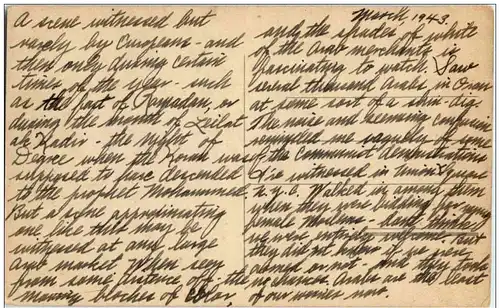 A scene witnessed but
rarely by Europeans - and
then only during certain
times of the year - such
as the fast of Ramadan, or
during the month of Leilat
al Kadir - the night of
when the Koran was
supposed to have descended
to the prophet Mohammed.
But a scene approximating
one like this may be
witnessed at any large
Arab market. When seen
from some distance off - the
many blotches of color,
March, 1943.
and the splashes of white
of the Arab merchants is
fascinating to watch. Saw
several thousand Arabs in Oran
at some sort of a shin-dig.
The noise and seeming confusion
reminded me vaguely of some
of the Communist demonstrations
I've witnessed in Union Square
N.Y.C. Walked in among them
when they were bidding for young
female Moslems - don't think
we were entirely welcome. But
they did not know if we were
armed or not - and they took
no chances. Arabs are the least
of our worries now.